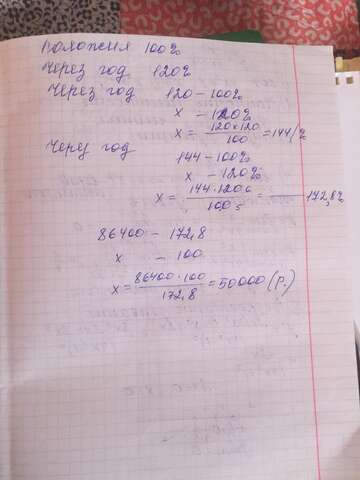 Положил 100%
Через год 120%
Через год 120 - 100%
x - 120%
x = 120×120 / 100 = 144%
Через год 144 - 100%
x - 120%
x = 144 · 120 / 100 = 172,8%
86400 - 172,8
x - 100
x = 86400 · 100 / 172,8 = 50000 (р.)